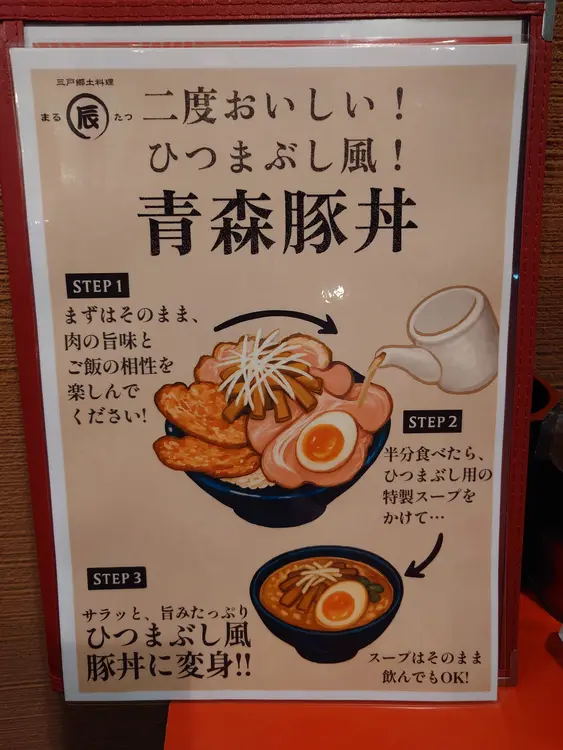 三戸郷土料理
まる 辰 たつ
二度おいしい!
ひつまぶし風!
青森豚丼
STEP 1
まずはそのまま、
肉の旨味と
ご飯の相性を
楽しんで
ください!
STEP 2
半分食べたら、
ひつまぶし用の
特製スープを
かけて…
STEP 3
サラッと、旨みたっぷり
ひつまぶし風
豚丼に変身!!
スープはそのまま
飲んでもOK!